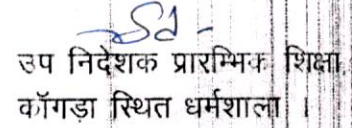 Sd -
उप निदेशक प्रारम्भिक शिक्षा,
कॉगड़ा स्थित धर्मशाला ।